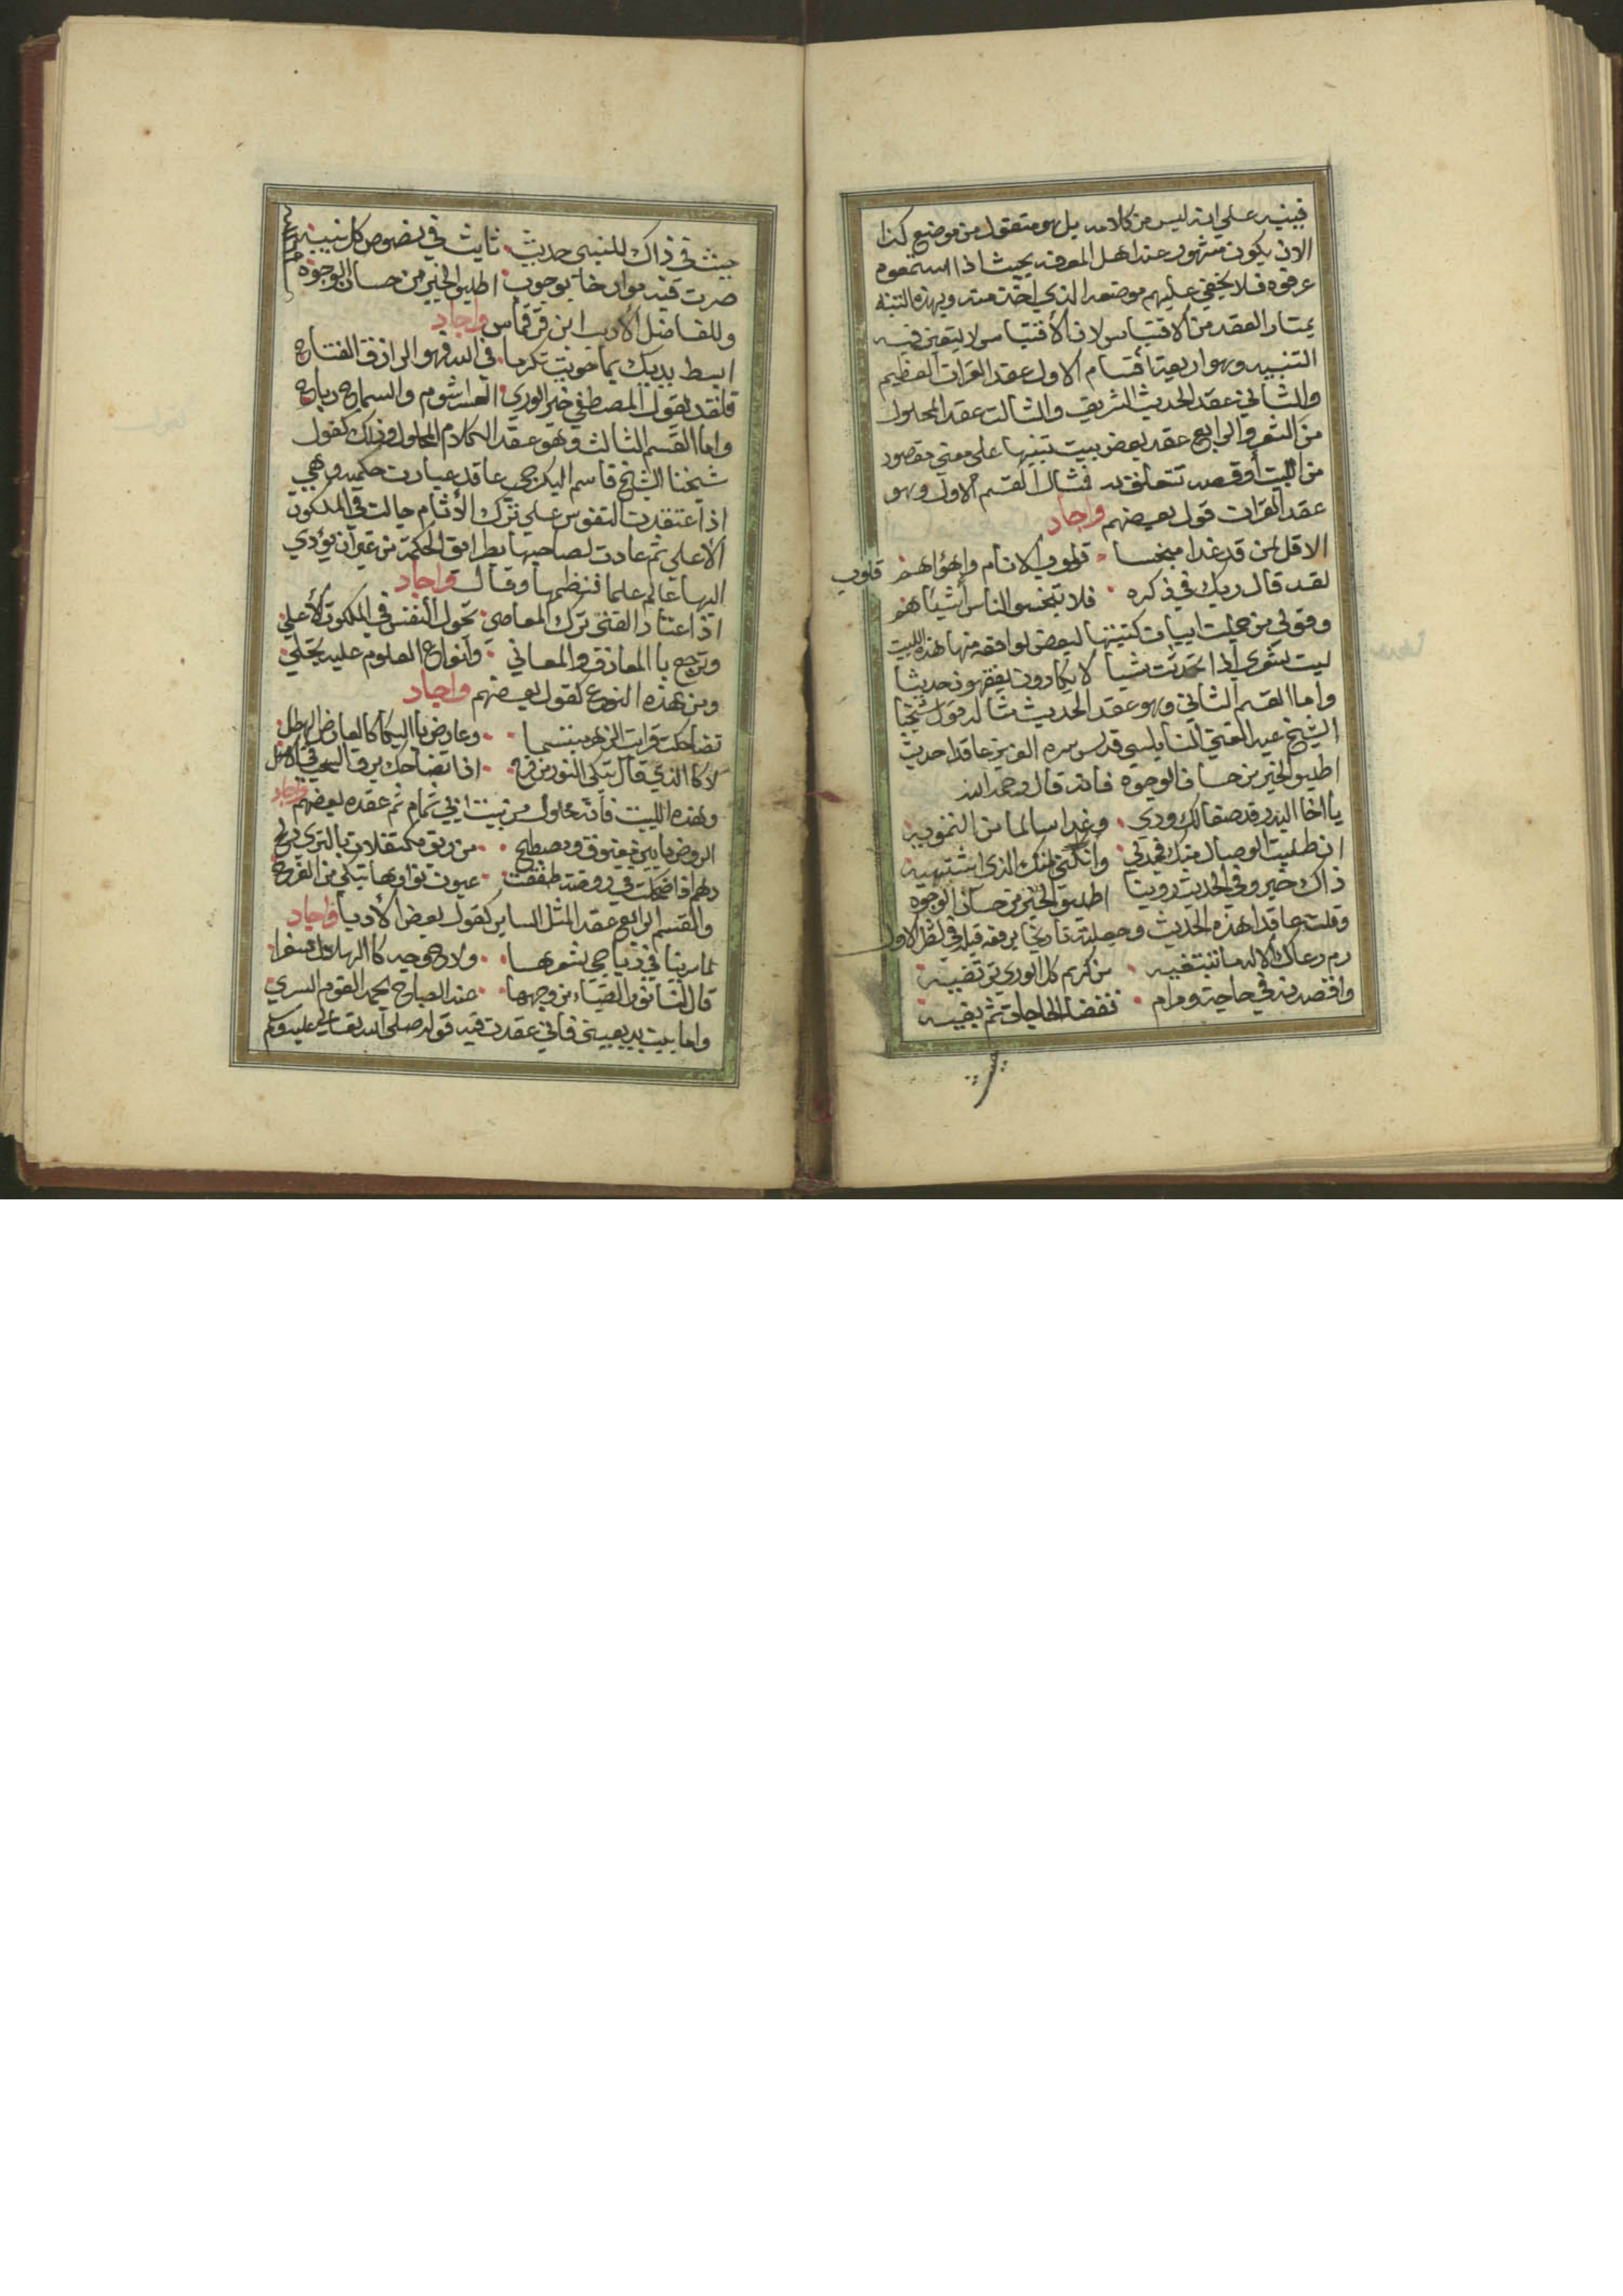 فينبه على انه ليس من كلامه بل هو منقول من موضع كذا
الا ان يكون مشهور عند اهل المعرفه بحيث اذا استمعوه
عرفوه فلا يخفي عليهم موضعه الذي اخذ منه وبهذه التنبه
يمتاز العقد من الاقتباس لان الاقتباس لا يتعين فيه
التنبيه وهو اربعة أقسام الاول عقد القرات العظيم
والثاني عقد الحديث الشريف والثالث عقد المحلول
من النثر والرابع عقد بعض بيت تنبيها على معني مقصود
من البيت أو قصه تتعلق به فمثال القسم الاول وهو
عقد القرات قول بعضهم واجاد
الا قل لمن قد غدا مبخسا قلوب الانام واهؤاهم
قلوب
لقد قال ربك في ذكره فلا تبخسو الناس أشيئاهم
وقولي من جملت ابيات كتبتها لبعض لوافعه منها هذه البيت
ليت شعري أذا تحدثت شيأ لا يكادون يفقهون حديثا
واما القسم الثاني وهو عقد الحديث مثاله قول شيخنا
الشيخ عبد الغني النابلسي قدس سره العزيز عاقدا حديث
اطلبو الخير من حسان الوجوه فانه قال رحمه الله
يا اخا البدر قد صفا لك ودي وغدا سالما من التمويه
ان طلبت الوصال منك فجد لي وانلني منك الذي اشتهيه
ذاك خير وفي الحديث روينا اطلبو الخير من حسان الوجوه
وقلت عاقدا هذه الحديث وجعلته تاريخا
دم رعاك الاله ما تبتغيه من كريم كل الوري ترتضيه
واقصدنه في حاجة ومرام
حديث ثابث في نصوص كل نبيه
اطلبو الخير من حسان الوجوه
وللفاضل الأديب ابن قرقماس واجاد
ابسط يديك بما حويت تكرما في الله فهو الرازق الفتاح
فلقد يقول المصطفي خير الوري العسر شوم والسماح رباح
واما القسم الثالث وهو عقد الكلام المحلول وذلك كقول
شيخنا الشيخ قاسم البكرجي عاقد عبارت حكميه وهي
اذا اعتقدت النفوس علي ترك الأثام جالت في الملكوت
الأعلى ثم عادت لصاحبها بطرايق الحكمة من غير ان يؤدي
اليها عالم علما فنظمها وقال واجاد
اذا اعتاد الفتى ترك المعاصي تحول النفس في الملكوت الأعلي
وترجع با المعارف والمعاني وأنواع العلوم عليه تجلي
ومن هذه النوع كقول بعضهم واجاد
تضاحكت فرايت الزهر مبتسما وعارض با البكا كالعارض الهطل
لا كا الذي قال تبكي النور من فرح اذا تضاحك برق
وهذه البيت فأنه محلول من بيت ابي تمام ثم عقده بعضهم واجاد
الروض ما بين مغبوق ومصطبح من ريق مكتفلات بالثري دلح
دهم اذا ضحكت في روضة طفقت عيون نوارها تبكي من الفرح
والقسم الرابع عقد المثل الساير كقول بعض الأدبا واجاد
لما سرينا في دياجي شعرها ولاح وجه كا الهلال
عند الصباح يحمد القوم السري
واما بيت بديعيتي فاني عقدت فيه قوله صلى الله تعالى عليه وسلم